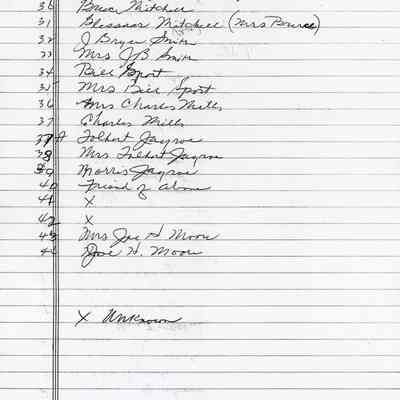 30 Bruce Mitchell
31 Mitchell (Mrs Bruce)
32 J Bryan Smith
33 Mrs J B Smith
34 Bill Spot
35 Mrs Bill Spot
36 Mrs Charles Mills
37 Charles Mills
37 A Tolbert Jayroe
38 Mrs Tolbert Jayroe
39 Morris Jayroe
40 Friend of above
41 X
42 X
43 Mrs Joe H Moore
44 Joe H. Moore
X Unknown